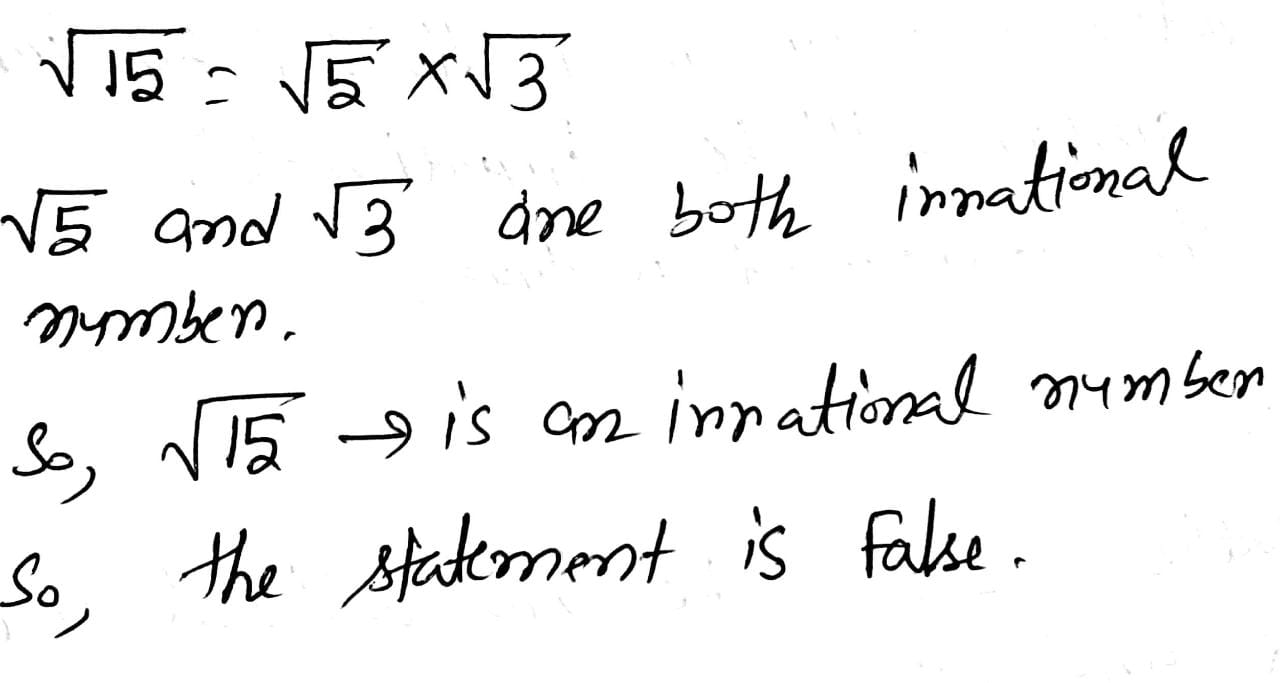 √15 = √5 × √3
√5 and √3 are both irrational
number.
So, √15 → is an irrational number
So, the statement is false.